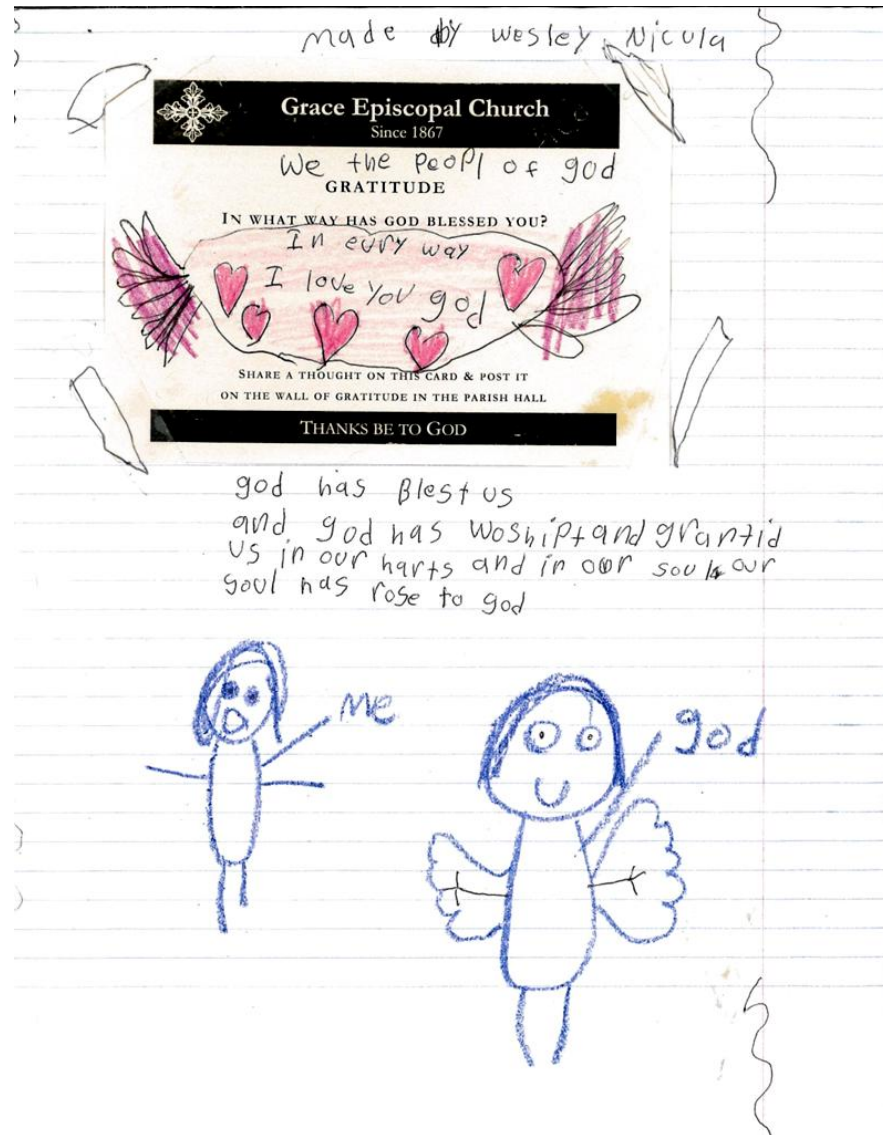 made by wesley Nicula
Grace Episcopal Church
Since 1867
We the peopl of god
GRATITUDE
IN WHAT WAY HAS GOD BLESSED YOU?
In evry way
I love you god
SHARE A THOUGHT ON THIS CARD & POST IT
ON THE WALL OF GRATITUDE IN THE PARISH HALL
THANKS BE TO GOD
god has Blest us
and god has woshipt and grantid
us in our harts and in our soul our
soul has rose to god
Me
god